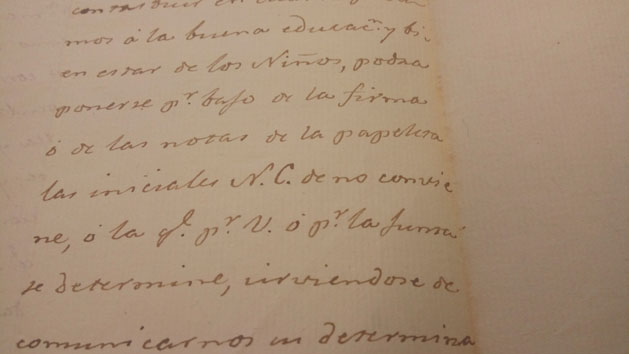 mos á la buena educac.ⁿ y bi-
en estar de los Niños, podra
ponerse p.ʳ bajo de la firma
ó de las notas de la papeleta
las iniciales N. C. de no convie
ne, ó la q.ᵉ p.ʳ V. ó p.ʳ la Junta
se determine, sirviendose de
comunicarnos su determina